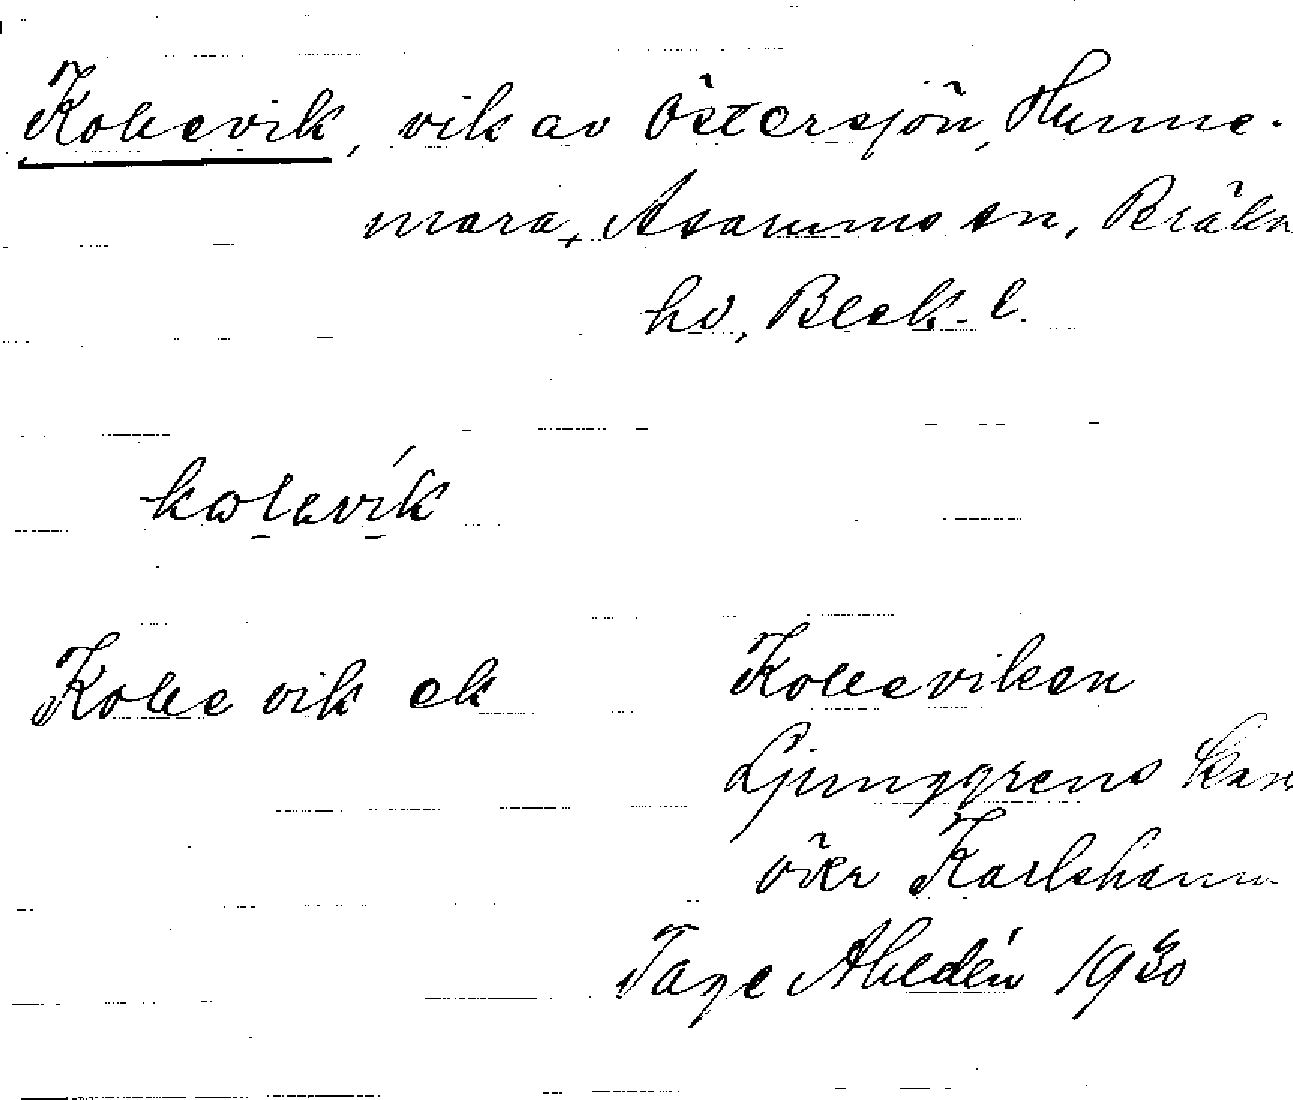 Kollevik, vik av Östersjön, Hunne-
mara, Asarums sn, Bräkn
hd, Blek. l.
Kolle vik ek
Kolleviken
Ljunggrens kar
över Karlshamn
Tage Ahldén 1930